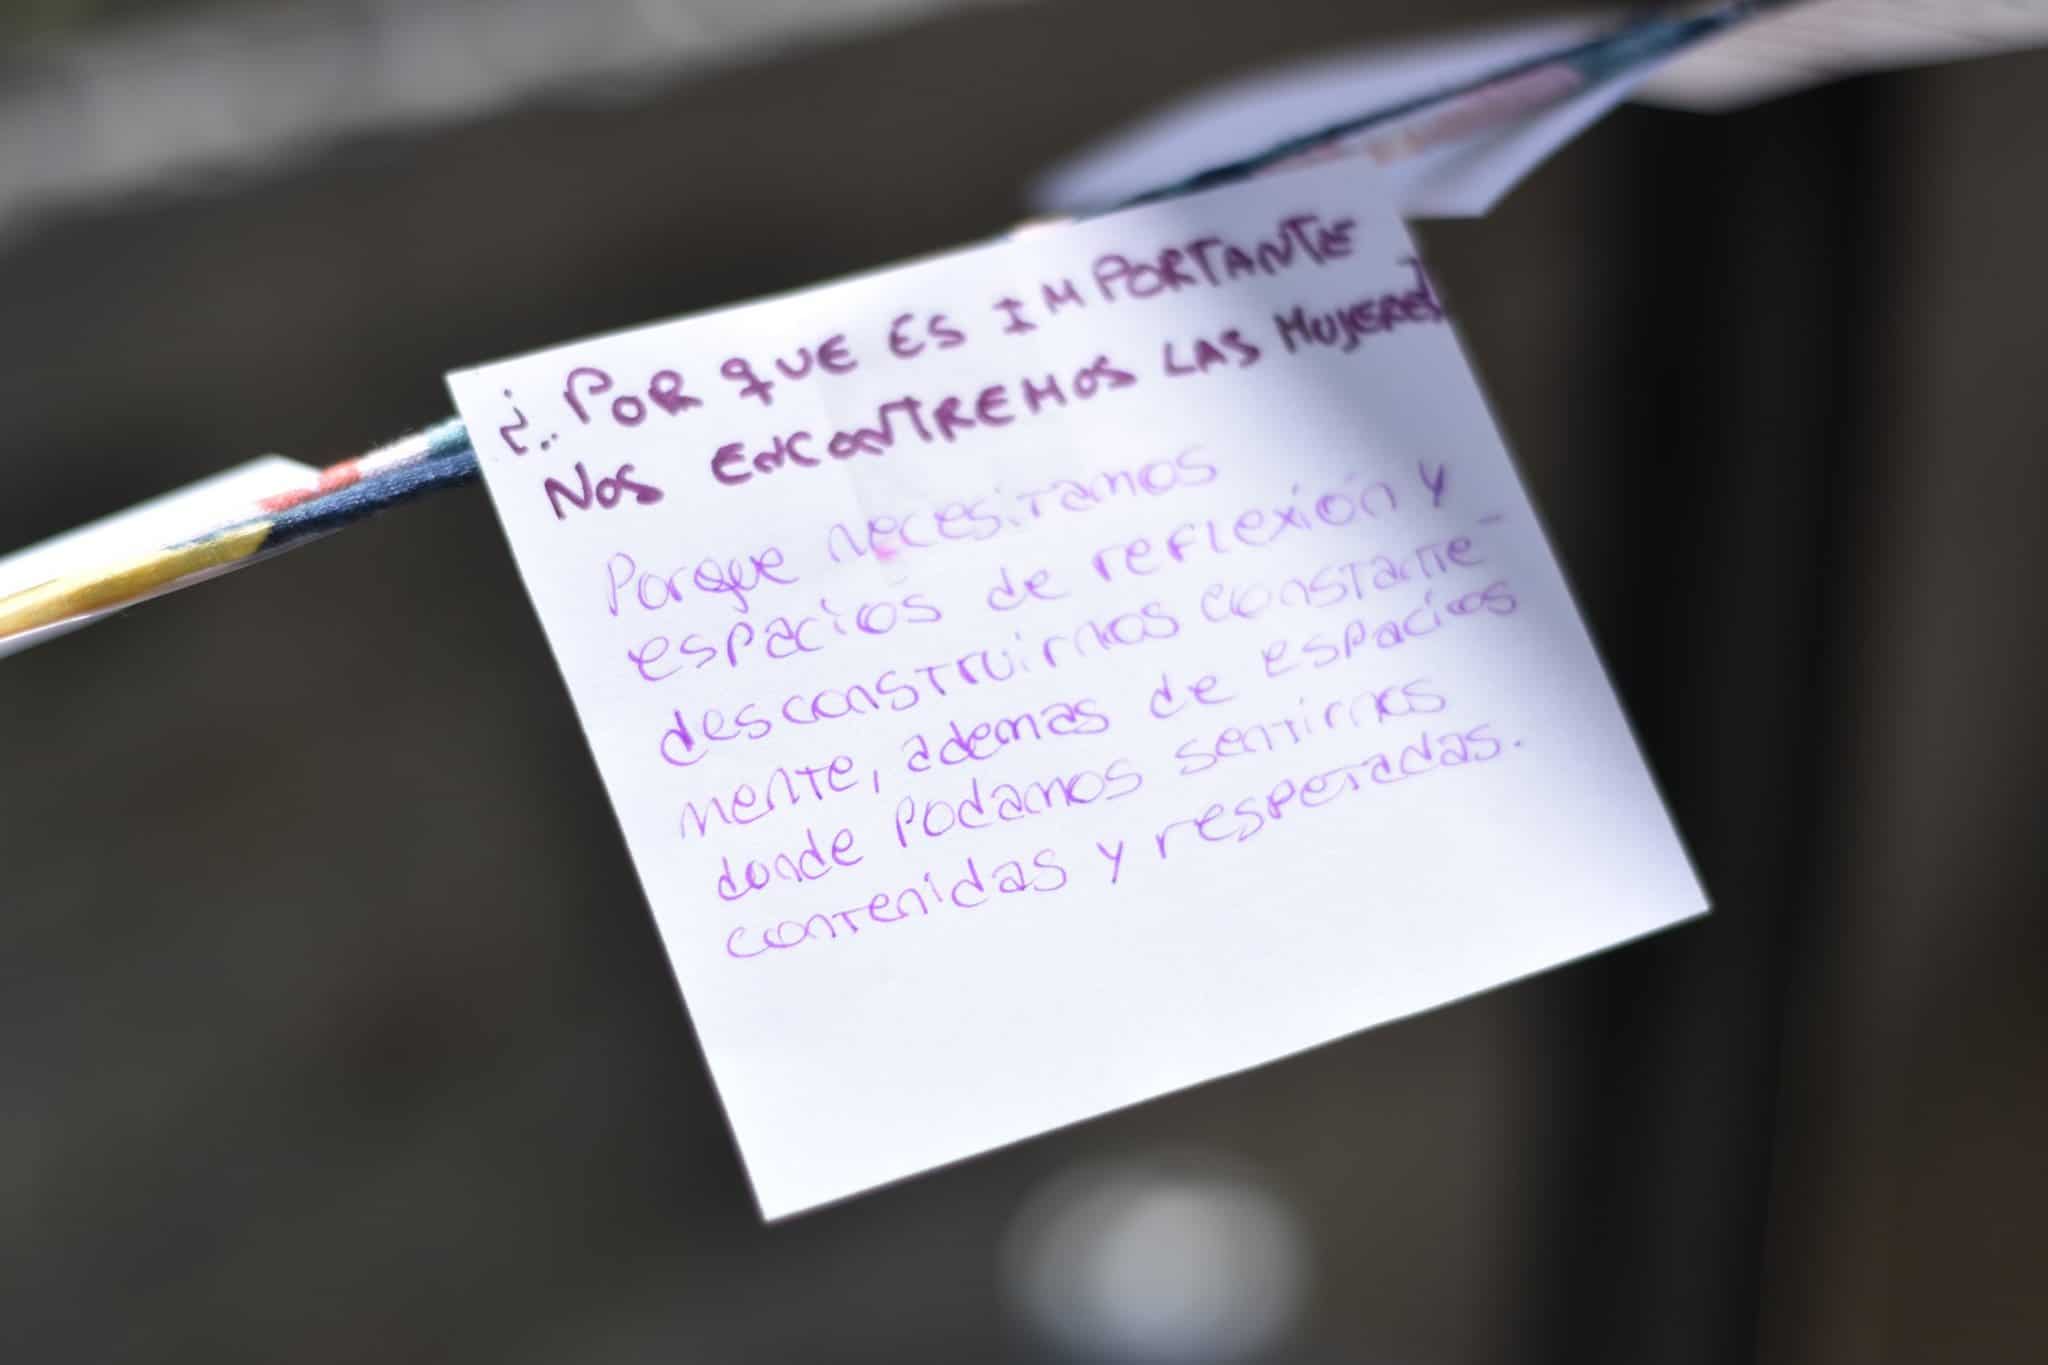 ¿.. POR QUE ES IMPORTANTE
NOS ENCONTREMOS LAS MUJERES?
Porque necesitamos
espacios de reflexión y
desconstruirnos constante-
mente, ademas de espacios
donde podamos sentirnos
contenidas y respetadas.